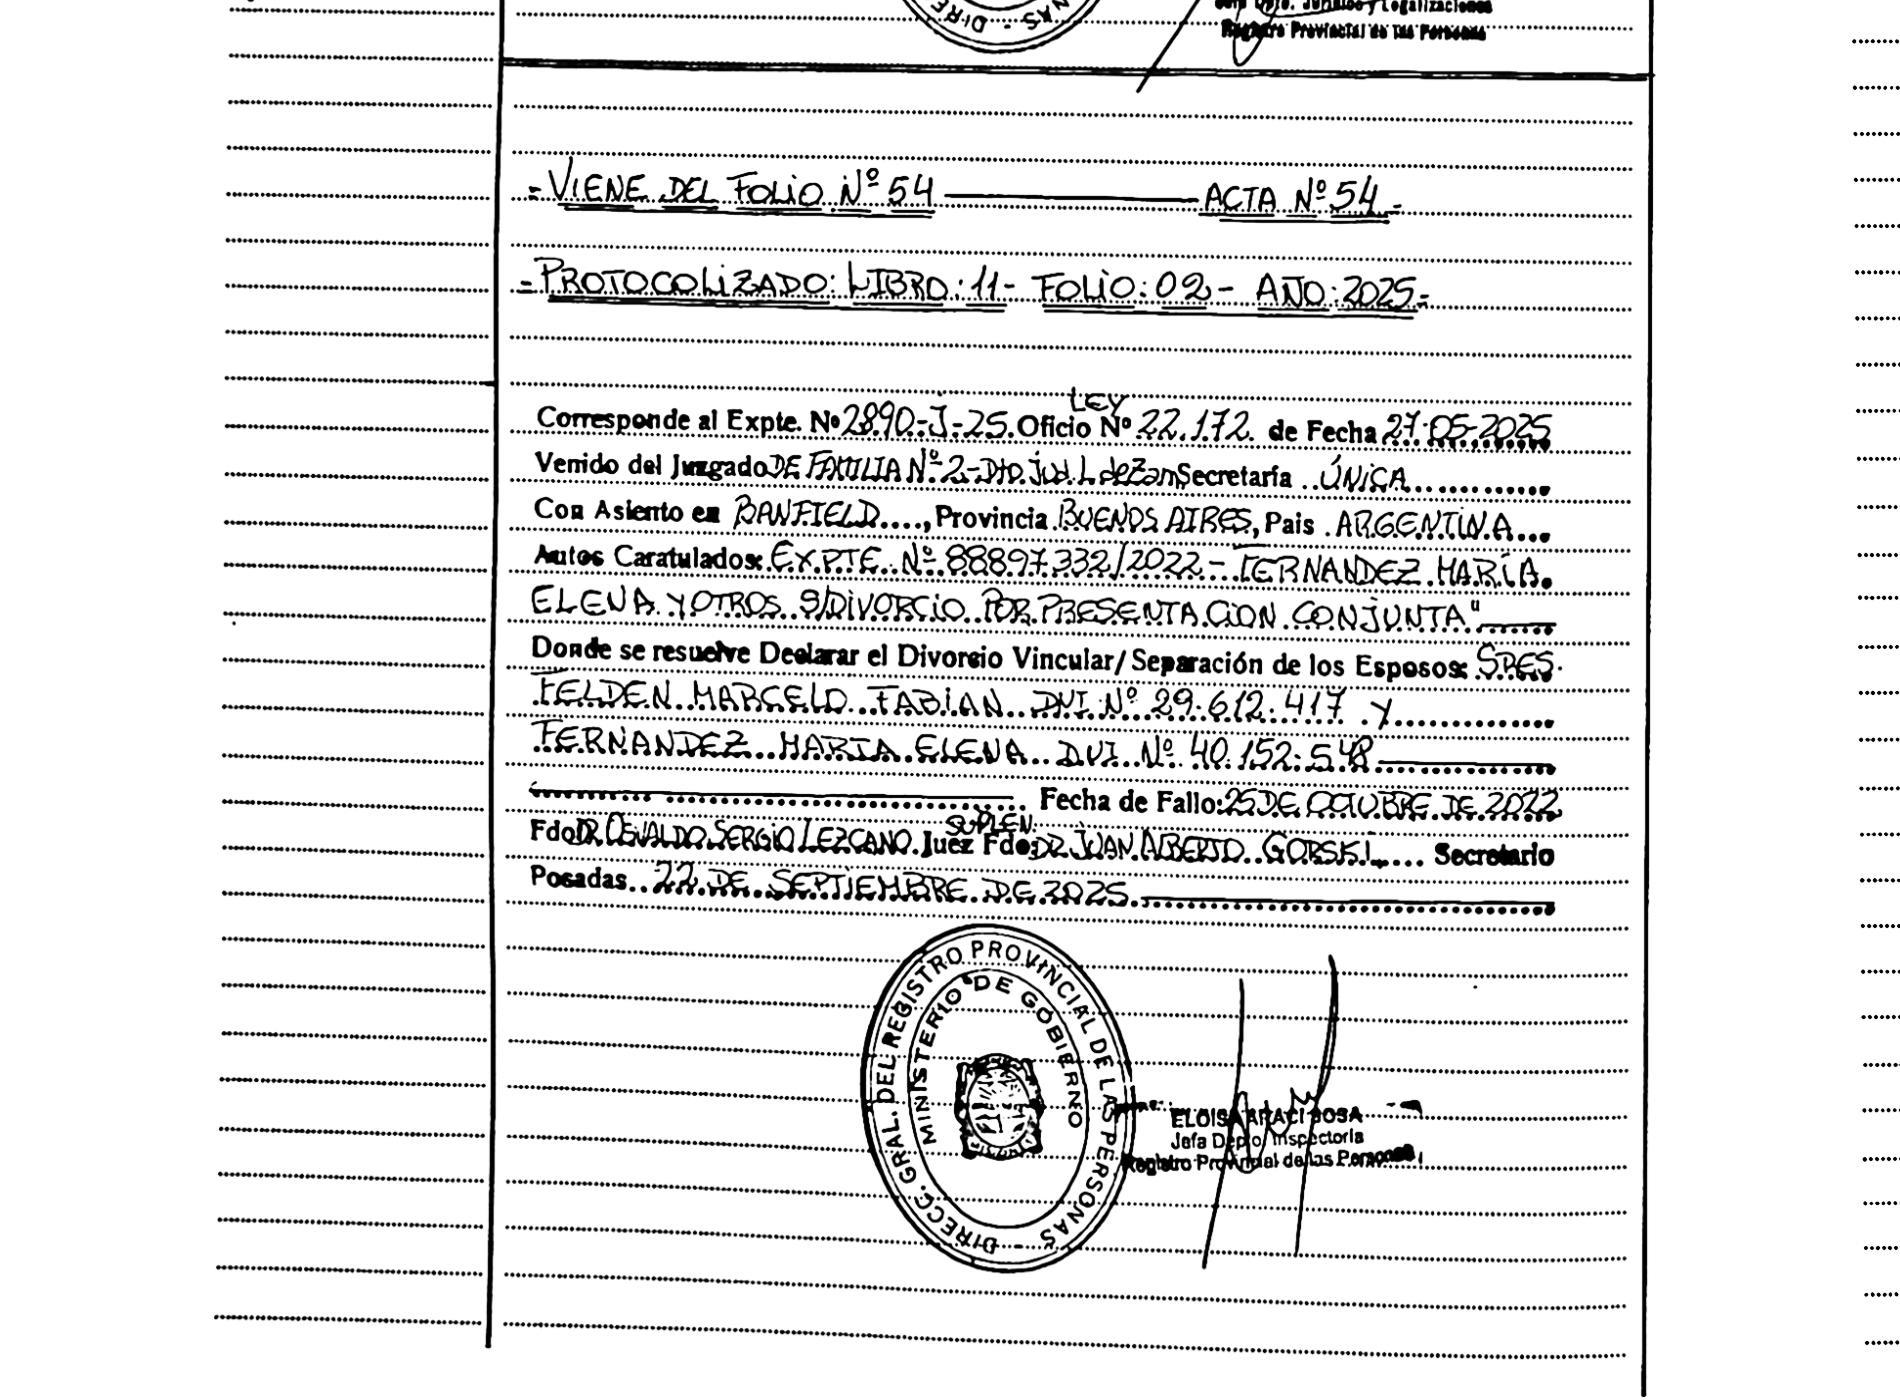 Jefa Dpto. Jurídico y Legalizaciones
Registro Provincial de las Personas
DIRE - NAS
=VIENE DEL FOLIO Nº 54 ACTA Nº 54=
=PROTOCOLIZADO: LIBRO: 11- FOLIO: 02- AÑO: 2025=
LEY
Corresponde al Expte. Nº 2890-J-25. Oficio Nº 22.172. de Fecha 27-05-2025
Venido del Juzgado DE FAMILIA Nº 2-Dto. Jud. L de Zam Secretaría ÚNICA
Con Asiento en BANFIELD...., Provincia BUENOS AIRES, Pais ARGENTINA...
Autos Caratulados: EXPTE. Nº 88897332/2022- FERNANDEZ MARÍA
ELENA Y OTROS S/DIVORCIO POR PRESENTACION CONJUNTA"
Donde se resuelve Declarar el Divorcio Vincular/Separación de los Esposos: SRES.
FELDEN MARCELO FABIAN DNI Nº 29.612.417 Y
FERNANDEZ MARIA ELENA DNI Nº 40.152.548
Fecha de Fallo: 25 DE OCTUBRE DE 2022
SUPLEN
Fdo DR. OSVALDO SERGIO LEZCANO. Juez Fdo: DR JUAN ALBERTO GORSKI.... Secretario
Posadas 22 DE SEPTIEMBRE DE 2025.
DIRECC. GRAL. DEL REGISTRO PROVINCIAL DE LAS PERSONAS -
MINISTERIO DE GOBIERNO
ELOISA ARACI SOSA
Jefa Depto. Inspectoría
Registro Provincial de las Personas